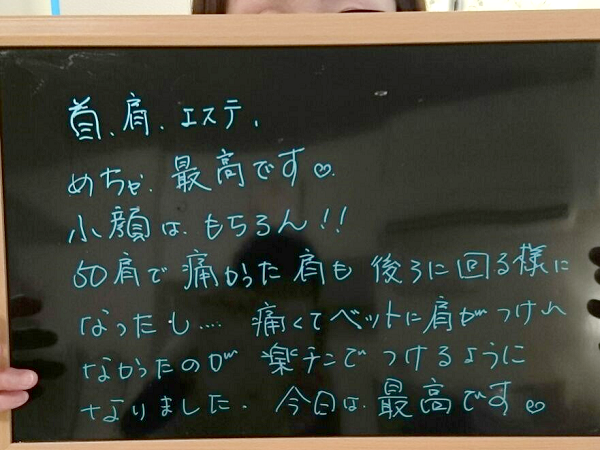 首、肩、エステ、
めちゃ、最高です♡
小顔は、もちろん!!
50肩で痛かった肩も後ろに回る様に
なったし.... 痛くてベットに肩がつけれ
なかったのが楽チンでつけるように
なりました、今日は、最高です♡